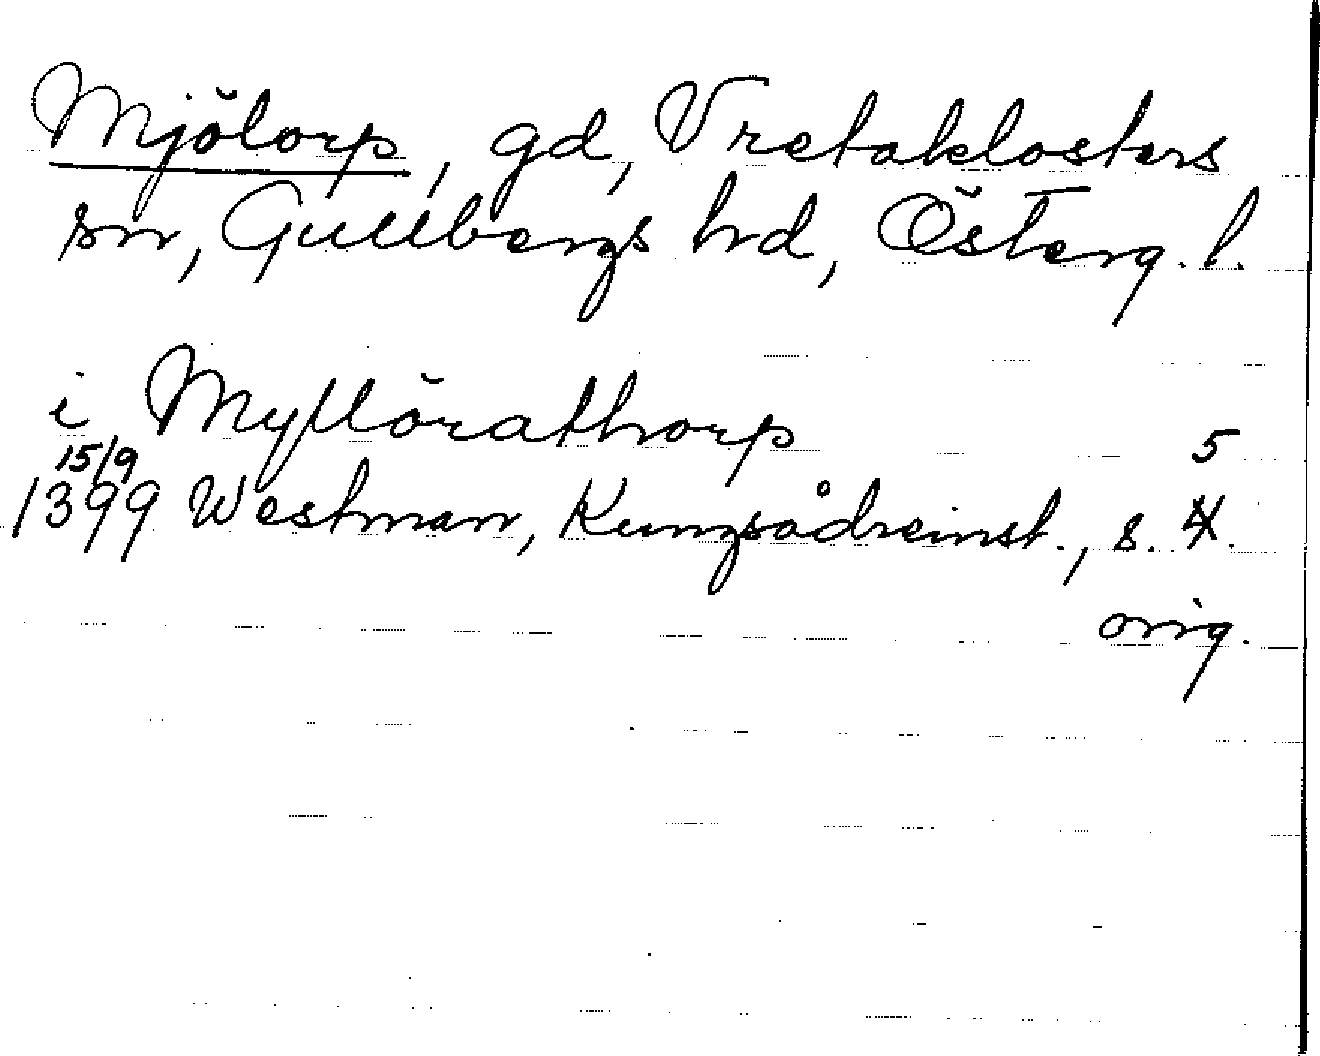 Mjölorp, gd, Vretaklosters
sn, Gullbergs hd, Österg. l.
i Myllörathorp
15/9 5
1399 Westman, Kungsådreinst., s. 4.
orig.